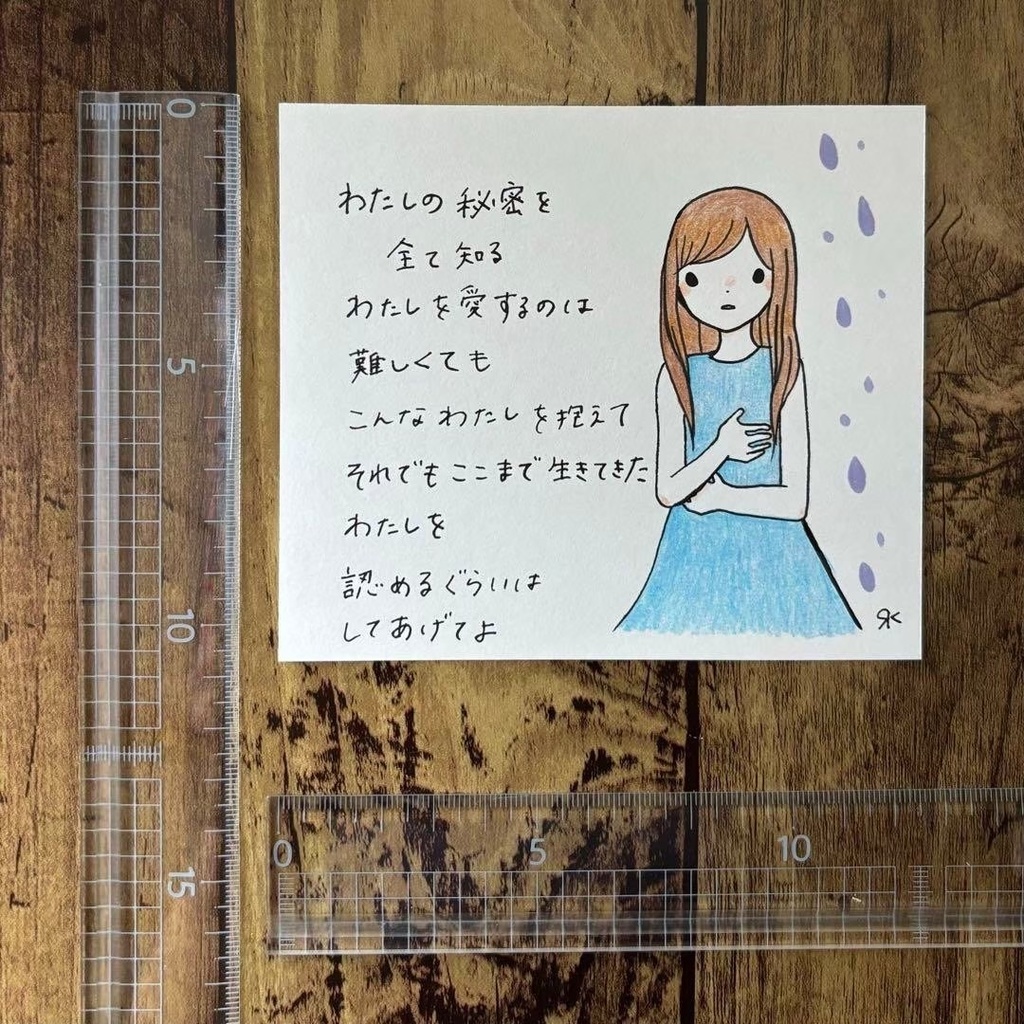 わたしの秘密を
全て知る
わたしを愛するのは
難しくても
こんなわたしを抱えて
それでもここまで生きてきた
わたしを
認めるぐらいは
してあげてよ
RK
0
5
10
15
0
5
10